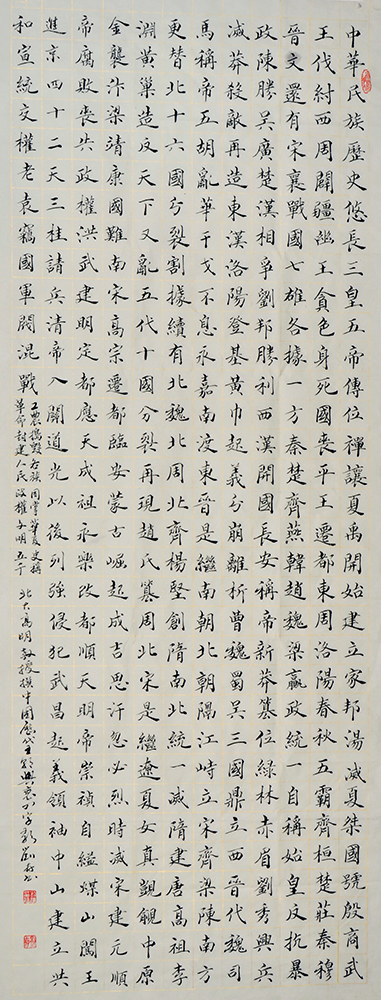 中華民族歷史悠長三皇五帝傳位禪讓夏禹開始建立家邦湯滅夏桀國號殷商武
王伐紂西周闢疆幽王貪色身死國喪平王遷都東周洛陽春秋五霸齊桓楚莊秦穆
晉文還有宋襄戰國七雄各據一方秦楚齊燕韓趙魏梁嬴政統一自稱始皇反抗暴
政陳勝吳廣楚漢相爭劉邦勝利西漢開國長安稱帝新莽篡位綠林赤眉劉秀興兵
滅莽殺敵再造東漢洛陽登基黃巾起義分崩離析曹魏蜀吳三國鼎立西晉代魏司
馬稱帝五胡亂華干戈不息永嘉南渡東晉是繼南朝北朝隔江峙立宋齊梁陳南方
更替北十六國分裂割據續有北魏北周北齊楊堅創隋南北統一滅隋建唐高祖李
淵黃巢造反天下又亂五代十國分裂再現趙氏篡周北宋是繼遼夏女真覬覦中原
金襲汴梁靖康國難南宋高宗遷都臨安蒙古崛起成吉思汗忽必烈時滅宋建元順
帝腐敗喪失政權洪武建明定都應天成祖永樂改都順天明帝崇禎自縊煤山闖王
進京四十二天三桂請兵清帝入關道光以後列強侵犯武昌起義領袖中山建立共
和宣統交權老袁竊國軍閥混戰
工農各族同掌華夏史稱
革命封建人民政權文明五千
北大高明教授撰中國歷代王朝興衰四字歌